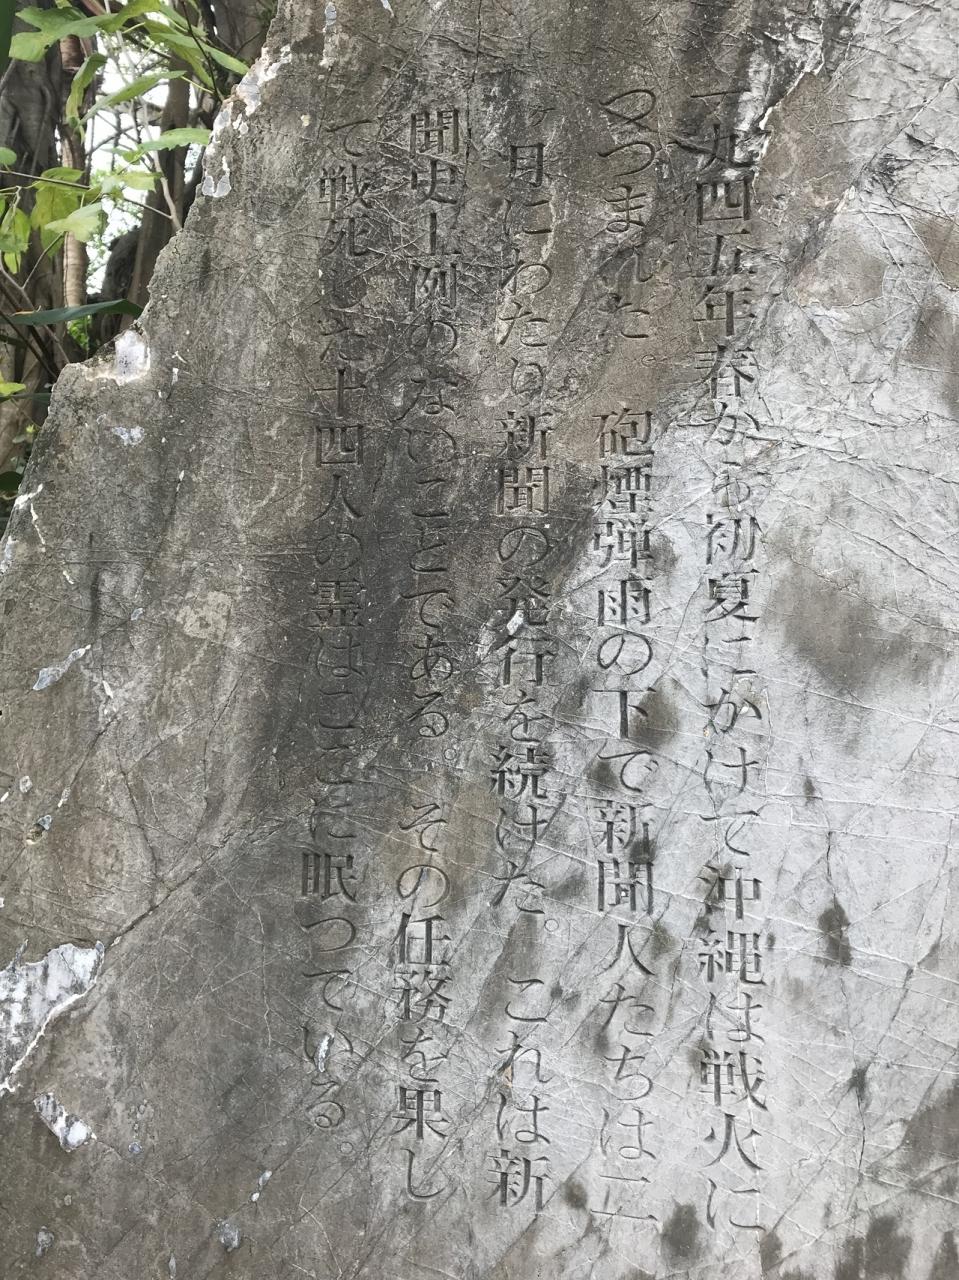 一九四五年春から初夏にかけて沖縄は戦火に
つつまれた。砲煙弾雨の下で新聞人たちは二
ヶ月にわたり新聞の発行を続けた。これは新
聞史上例のないことである。その任務を果し
て戦死した十四人の霊はここに眠つている。